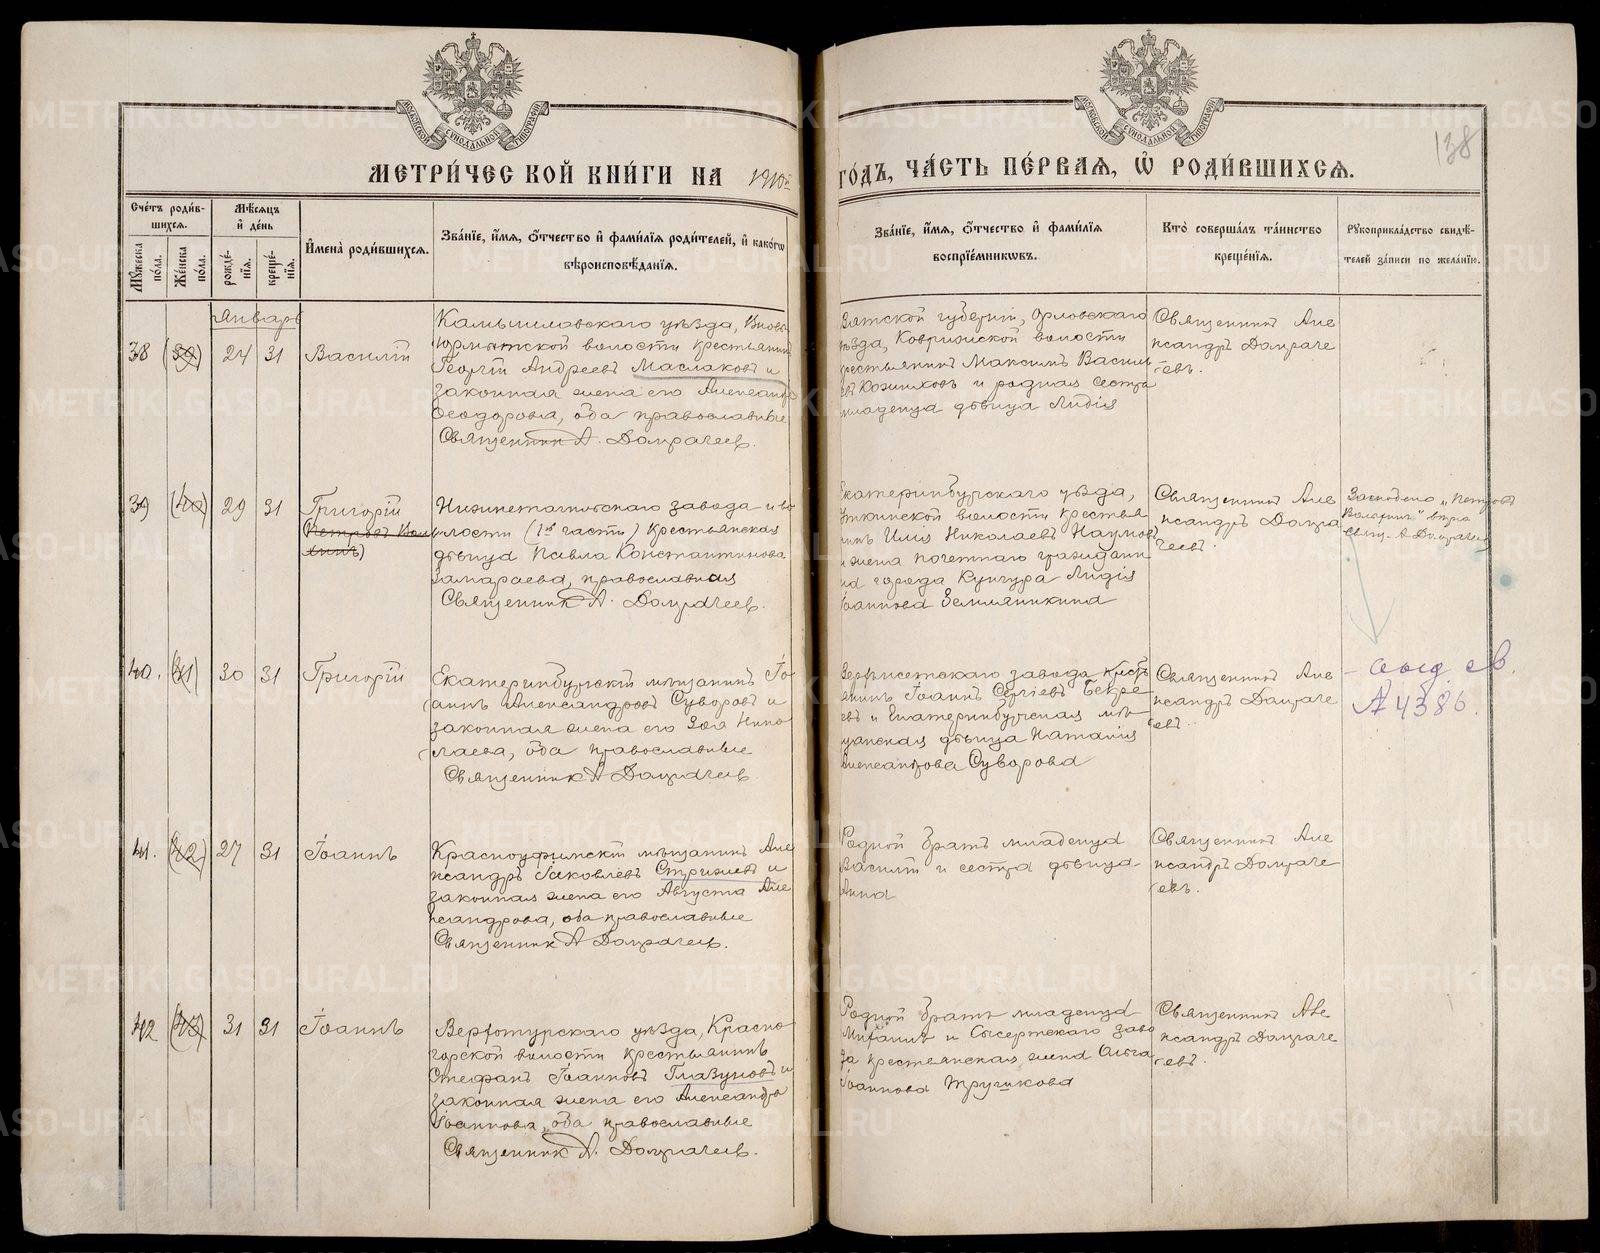 МЕТРИ́ЧЕСКОЙ КНИ́ГИ НА 1910й ГО́ДЪ, ЧА́СТЬ ПЕ́РВАЯ, Ѽ РОДИ́ВШИХСЯ.
138
Сче́тъ роди́в-
шихся.
Мѣ́сяцъ
и҆ де́нь
И҆мена̀ роди́вшихся.
Зва́нїе, и҆́мя, ѻ҆́тчество и҆ фами́лїя роди́телей, и҆ како́гѡ
вѣроисповѣ́данїя.
Мꙋ́жеска по́ла.
Же́нска по́ла.
рожде́нїя.
креще́нїя.
Зва́нїе, и҆́мя, ѻ҆́тчество и҆ фами́лїя
воспрїе́мникѡвъ.
Кто̀ соверша́лъ та́инство
креще́нїя.
Рꙋкоприкла́дство свидѣ́-
телей за́писи по жела́нїю.
Январь
38 (39) 24 31 Василій
Камышловскаго уѣзда,
Юрмытской волости крестьянинъ
Георгій Андреевъ Маслаковъ и
законная жена его Александра
Ѳеодоровна, оба православные
Священник А. Домрачеев.
Вятской губерніи, Орловскаго
уѣзда, Ковринской волости
крестьянинъ Максимъ Василь
евъ Кожиховъ и родная сестра
младенца дѣвица Лидія
Священникъ Але
ксандръ Домраче
евъ.
39 (40) 29 31 Григорій
Нижнетагильскаго завода и во
лости (1й части) крестьянская
дѣвица Павла Константинова
Замараева, православная
Священник А. Домрачеев.
Екатеринбургскаго уѣзда,
Уткинской волости крестья
нинъ Илія Николаевъ Наумовъ
и жена почетнаго граждани
на города Кунгура Лидія
Іоаннова Земляникина
Священникъ Але
ксандръ Домра
чеевъ.
Свящ. А. Домрачеев
40. (41) 30 31 Григорій
Екатеринбургскій мѣщанинъ Іо
аннъ Александровъ Суворовъ и
законная жена его Зоя Нико
лаева, оба православные
Священник А Домрачеев
завода крест
янинъ Іоаннъ Сергіевъ Бекре
евъ и Екатеринбургская мѣ
щанская дѣвица Наталія
Александрова Суворова
Священникъ Але
ксандръ Домраче
евъ.
св.
А 4386.
41. (42) 27 31 Іоаннъ
Красноуфимскій мѣщанинъ Але
ксандръ Іаковлевъ Стрижевъ и
законная жена его Августа Але
ксандрова, оба православные
Священник А Домрачеев.
Родной братъ младенца
Василій и сестра дѣвица
Анна
Священникъ Але
ксандръ Домраче
евъ.
42 (43) 31 31 Іоаннъ
Верхотурскаго уѣзда, Красно
горской волости крестьянинъ
Стефанъ Іоанновъ Глазуновъ и
законная жена его Александра
Іоаннова, оба православные
Священник А. Домрачеев.
Родной братъ младенца
Михаилъ и Сысертскаго заво
да крестьянская жена Ольга
Іоаннова Трушкова
Священникъ Але
ксандръ Домраче
евъ.
METRIKI.GASO-URAL.RU